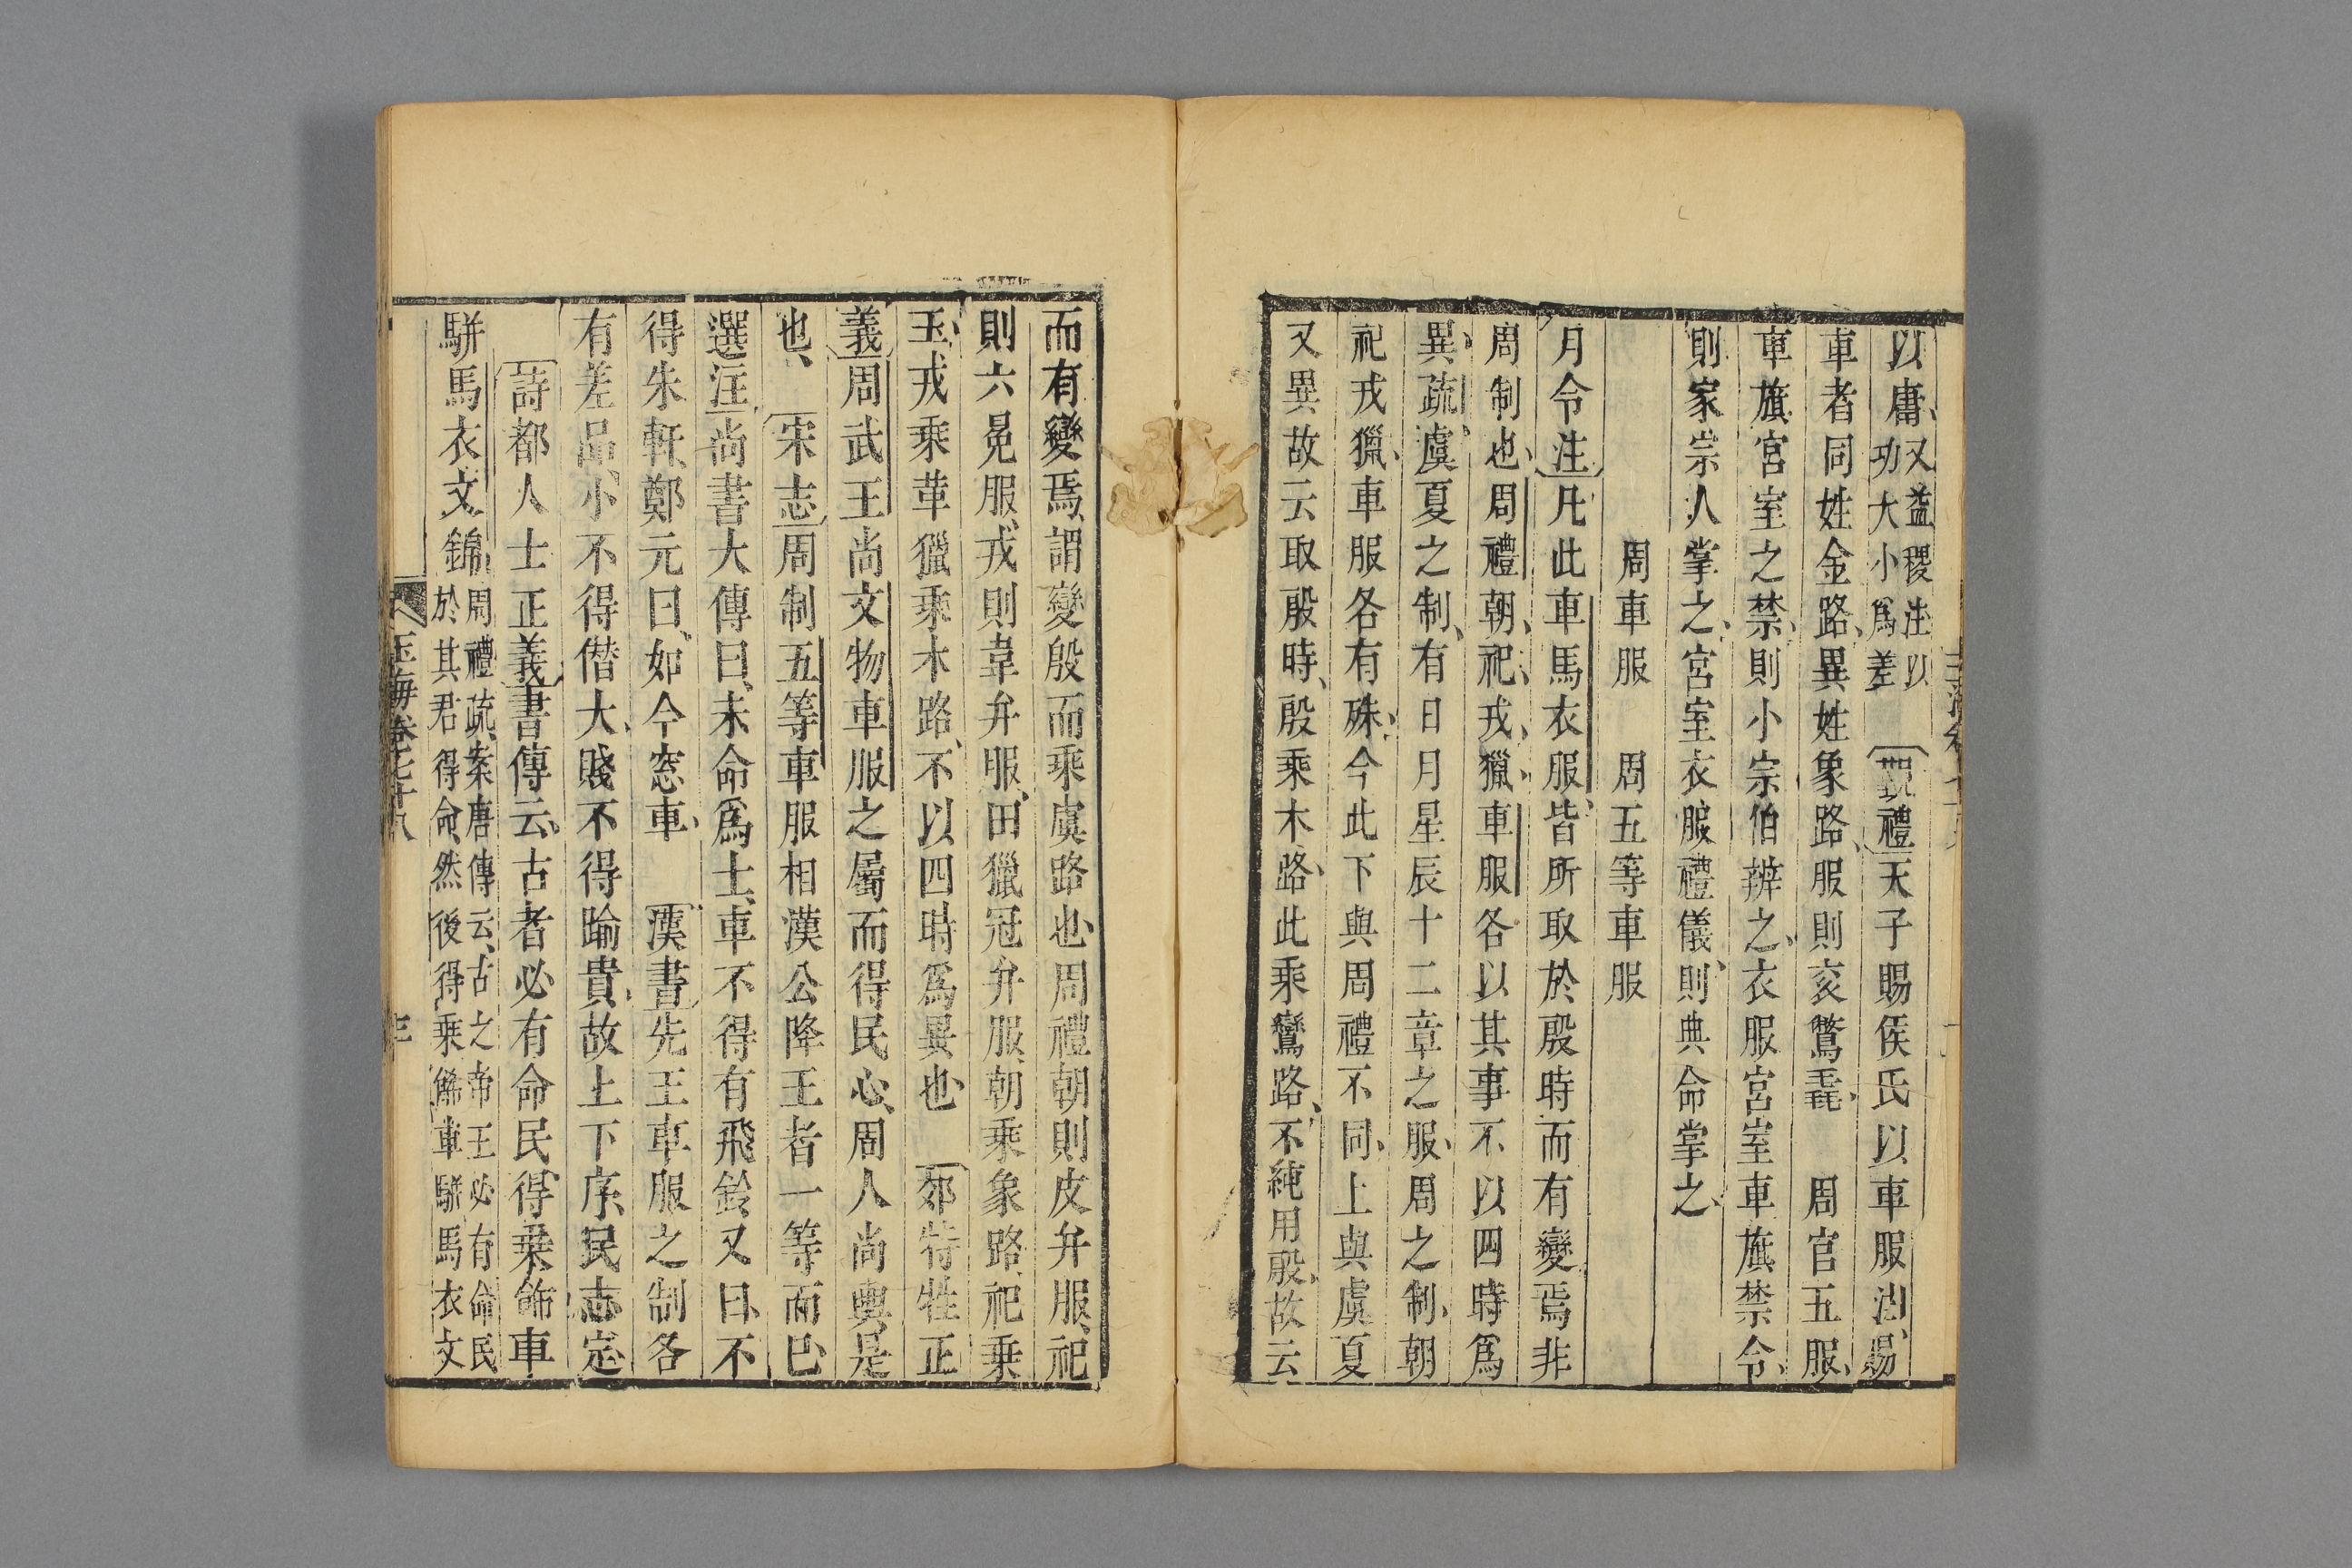 以庸又益稷注以功大小爲差 覲禮天子賜侯氏以車服注賜
車者同姓金路異姓象路服則衮鷩毳 周官五服
車旗宮室之禁則小宗伯辨之衣服宮室車旗禁令
則家宗人掌之宮室衣服禮儀則典命掌之
周車服 周五等車服
月令注凡此車馬衣服皆所取於殷時而有變焉非
周制也周禮朝祀戎獵車服各以其事不以四時爲
異疏虞夏之制有日月星辰十二章之服周之制朝
祀戎獵車服各有殊今此下與周禮不同上與虞夏
又異故云取殷時殷乘木路此乘鸞路不純用殷故云
而有變焉謂變殷而乘虞路也周禮朝則皮弁服祀
則六冕服戎則韋弁服田獵冠弁服朝乘象路祀乗
玉戎乘革獵乘木路不以四時爲異也 郊特牲正
義周武王尚文物車服之屬而得民心周人尚輿是
也 宋志周制五等車服相漢公降王者一等而已
選注尚書大傳曰未命爲士車不得有飛鈴又曰不
得朱軒鄭元曰如今窓車 漢書先王車服之制各
有差品小不得僭大賤不得踰貴故上下序民志定
詩都人士正義書傳云古者必有命民得乗飾車
駢馬衣文錦周禮疏案唐傳云古之帝王必有命民於其君得命然後得乗飾車駢馬衣文
玉海卷七十八